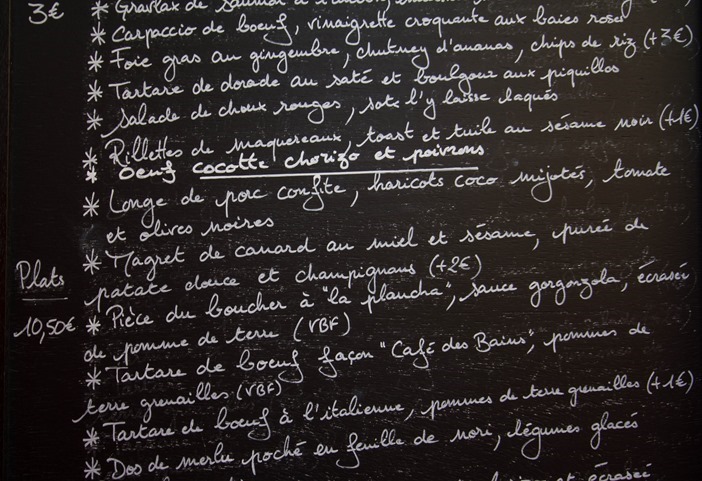 3€
* Gravlax de saumon à l'
* Carpaccio de boeuf, vinaigrette croquante aux baies roses
* Foie gras au gingembre, chutney d'ananas, chips de riz (+3€)
* Tartare de dorade au saté et boulgour aux piquillos
* Salade de choux rouges, sots l'y laisse laqués
* Rillettes de maquereaux, toast et tuile au sésame noir (+1€)
* Oeuf cocotte chorizo et poivrons
* Longe de porc confite, haricots coco mijotés, tomate
et olives noires
Plats
* Magret de canard au miel et sésame, purée de
patate douce et champignons (+2€)
10,50€
* Pièce du boucher à "la plancha", sauce gorgonzola, écrasée
de pomme de terre (VBF)
* Tartare de boeuf façon "Café des Bains", pommes de
terre grenailles (VBF)
* Tartare de boeuf à l'italienne, pommes de terre grenailles (+1€)
* Dos de merlu poché en feuille de nori, légumes glacés
et écrasée